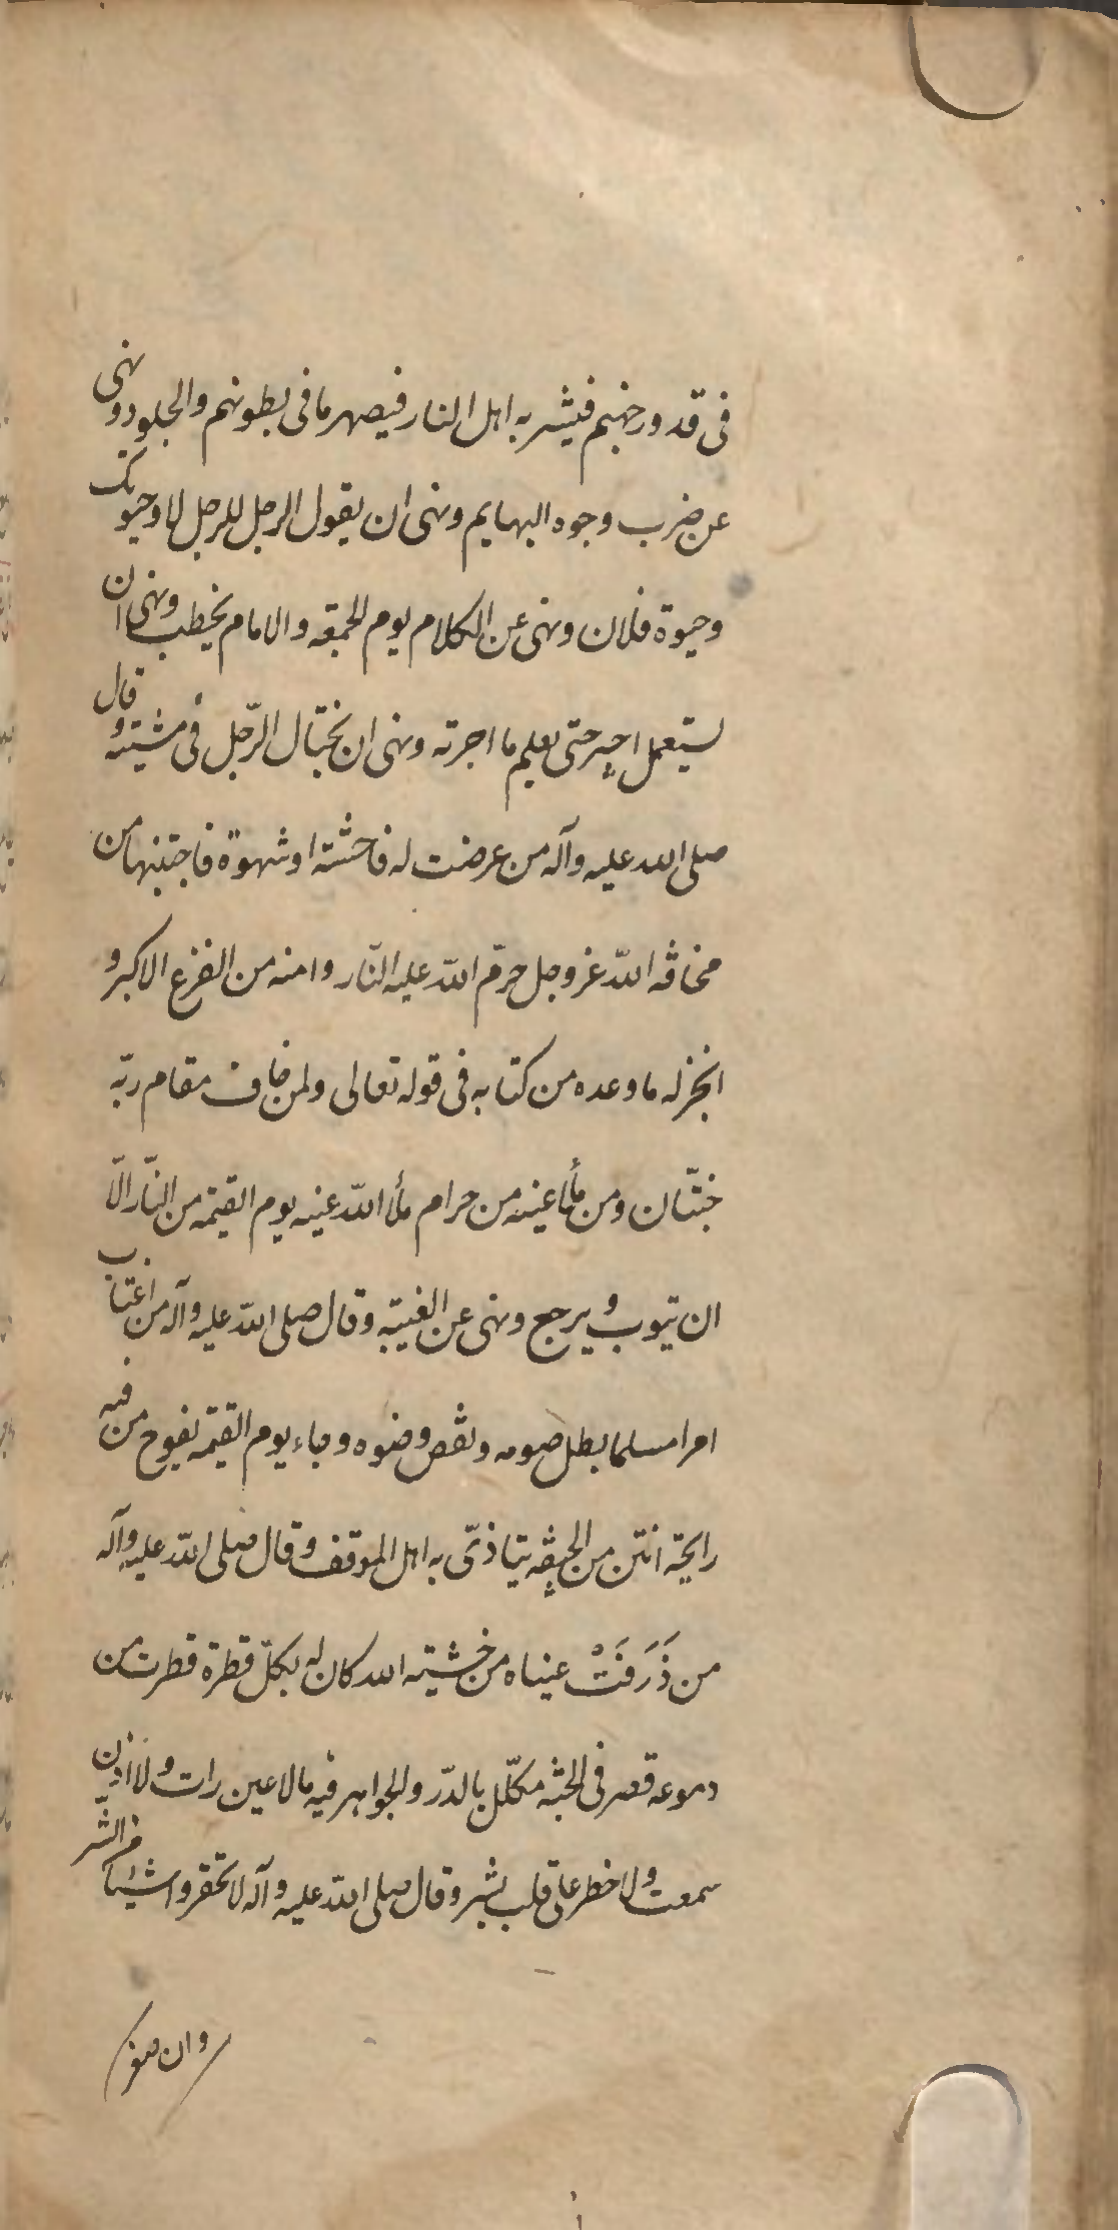 فى قدور جهنم فيشربه اهل النار فيصهر ما فى بطونهم والجلود ونهى
عن ضرب وجوه البهايم ونهى ان يقول الرجل للرجل لا وحيوتك
وحيوة فلان ونهى عن الكلام يوم الجمعه والامام يخطب ونهى ان
يستعمل اجير حتى يعلم ما اجرته ونهى ان يختال الرّجل فى مشيته وقال
صلى الله عليه وآله من عرضت له فاحشة او شهوة فاجتنبها من
مخافه اللّه عز وجل حرّم اللّه عليه النّار وامنه من الفزع الاكبر و
انجز له ما وعده من كتابه فى قوله تعالى ولمن خاف مقام ربّه
جنّتان ومن ملأ عينه من حرام ملأ اللّه عينه يوم القيمه من النّار الّا
ان يتوب ويرجع ونهى عن الغيبة وقال صلى اللّه عليه وآله من اغتاب
امرا مسلما بطل صومه ونقص وضوه وجاء يوم القيمه يفوح من فيه
رايحة انتن من الجيفه يتاذىّ به اهل الموقف وقال صلى اللّه عليه وآله
من ذَرَفَتْ عيناه من خشية الله كان له بكلّ قطرة قطرت من
دموعه قصر فى الجنّه مكلّل بالدّر والجواهر فيه ما لا عين رات ولا اذن
سمعت ولا خطر على قلب بشر وقال صلى اللّه عليه وآله لا تحقروا شيئا من الشّر
وان صغر